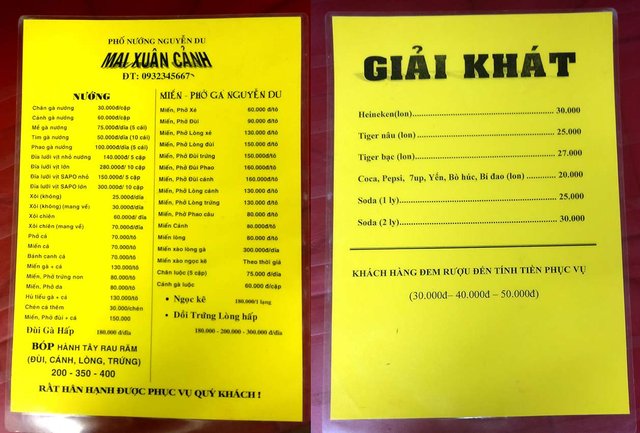 PHỐ NƯỚNG NGUYỄN DU
MAI XUÂN CẢNH
ĐT: 0932345667
NƯỚNG
Chân gà nướng 30.000đ/cặp
Cánh gà nướng 60.000đ/cặp
Mề gà nướng 75.000đ/dĩa (5 cái)
Tim gà nướng 50.000đ/dĩa (10 cái)
Phao gà nướng 100.000đ/dĩa (5 cái)
Đĩa lưỡi vịt nhỏ nướng 140.000đ/ 5 cặp
Đĩa lưỡi vịt lớn 280.000đ/ 10 cặp
Đĩa lưỡi vịt SAPO nhỏ 150.000đ/ 5 cặp
Đĩa lưỡi vịt SAPO lớn 300.000đ/ 10 cặp
Xôi (không) 25.000đ/dĩa
Xôi (không)(mang về) 30.000đ/dĩa
Xôi chiên 60.000đ/ dĩa
Xôi chiên (mang về) 70.000đ/dĩa
Phở cá 70.000đ/tô
Miến cá 70.000đ/tô
Bánh canh cá 70.000đ/tô
Miến gà + cá 130.000đ/tô
Miến, Phở trứng non 80.000đ/tô
Miến, Phở da 80.000đ/tô
Hủ tiếu gà + cá 130.000đ/tô
Chén cá thêm 30.000/chén
Miến, Phở đùi + cá 150.000
Đùi Gà Hấp 180.000 đ/dĩa
BÓP HÀNH TÂY RAU RĂM
(ĐÙI, CÁNH, LÒNG, TRỨNG)
200 - 350 - 400
MIẾN - PHỞ GÀ NGUYỄN DU
Miến, Phở Xé 60.000 đ/tô
Miến, Phở Đùi 90.000 đ/tô
Miến, Phở Lòng xé 130.000 đ/tô
Miến, Phở Lòng đùi 150.000đ/tô
Miến, Phở Đùi trứng 150.000đ/tô
Miến, Phở Đùi Phao 160.000đ/tô
Miến, Phở Đùi cánh 160.000đ/tô
Miến, Phở Lòng cánh 130.000 đ/tô
Miến, Phở Lòng trứng 130.000 đ/tô
Miến, Phở Phao câu 80.000 đ/tô
Miến Cánh 80.000 đ/tô
Miến lòng 80.000 đ/tô
Miến xào lòng gà 300.000đ/dĩa
Miến xào ngọc kê Theo thời giá
Chân luộc (5 cặp) 75.000 đ/dĩa
Cánh gà luộc 60.000 đ/cặp
• Ngọc kê 180.000/1 lạng
• Dồi Trứng Lòng hấp
180.000 - 200.000 - 300.000 đ/dĩa
RẤT HÂN HẠNH ĐƯỢC PHỤC VỤ QUÝ KHÁCH !
GIẢI KHÁT
Heineken(lon)............................................30.000
Tiger nâu (lon)............................................25.000
Tiger bạc (lon)............................................27.000
Coca, Pepsi, 7up, Yến, Bò húc, Bí đao (lon)..........20.000
Soda (1 ly)............................................25.000
Soda (2 ly)............................................30.000
KHÁCH HÀNG ĐEM RƯỢU ĐẾN TÍNH TIỀN PHỤC VỤ
(30.000đ– 40.000đ - 50.000đ)